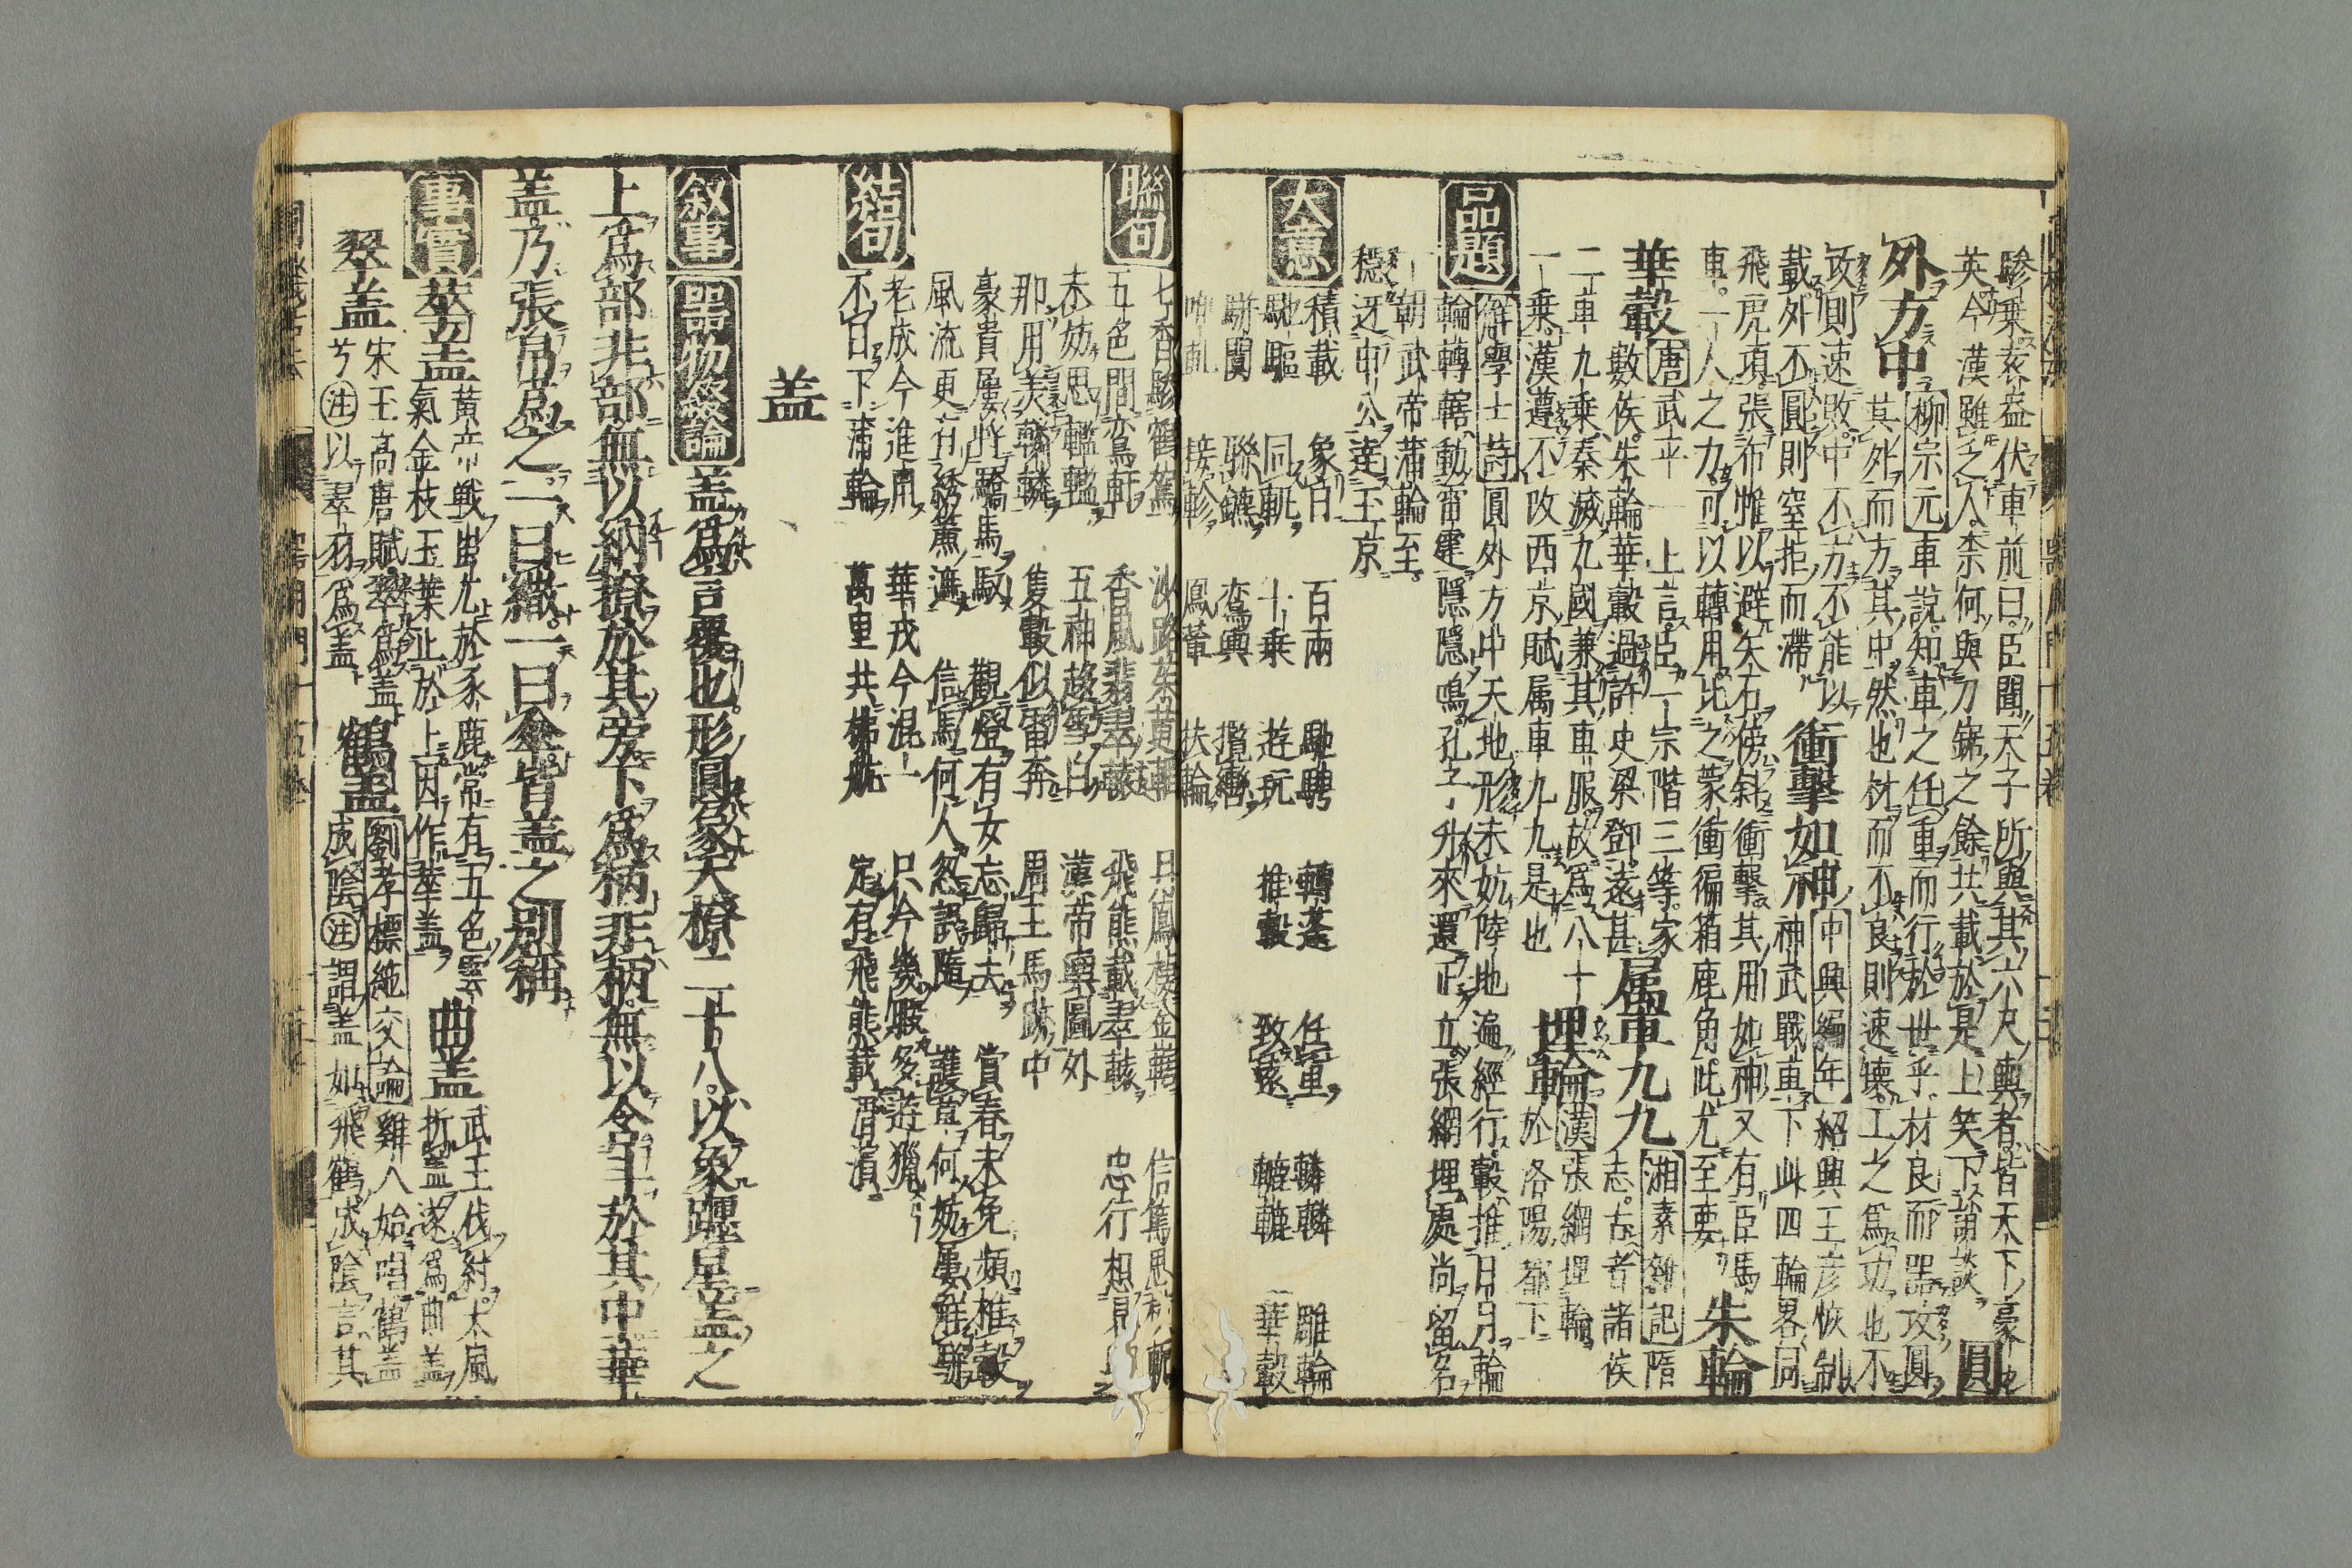 驂乗袁盎伏車前曰臣聞天子所與共六尺輿者皆天下豪
英今漢雖乏人柰何與刀鋸之餘共載於是上笑下
圓
外方中
柳宗元車說知車之任重而行於世乎材良而器攻圓
其外而方其中然也材而不良則速壊工之為功也不
攻則速敗中不方不能以
載外不圓則窒拒而滯
衝擊如神
中興編年紹興王彦恢制
神武戰車下此四輪畧同
飛虎項張布惟以避矢石傍斜衝擊其用如神又有臣馬
車一人之力可以轉用比之蒙衝徧箱鹿角此尤至要
朱輪
華轂
唐武平一上言臣一宗階三等家
數侯朱輪華轂過許史梁鄧遠甚
属車九九
湘素雜記隋
志古者諸侯
二車九乗秦滅九國兼其車服故為八十
一乗漢遵不改西京賦属車九九是也
埋輪
漢張綱埋輪
於洛陽都下
品題
解學士詩圓外方中天地形未妨陸地遍經行轂推日月輪
輪轉轄動雷霆隱隱鳴孔子升來還正立張綱埋處尚留名
朝武帝蒲輪至
穩迓申公達玉京
大意
積載 象日 百兩 馳騁 轉蓬 任重 轔轔 雕輪
馳驅 同軌 十乗 遊玩 推轂 致遠 轆轆 華轂
駢闐 聯鑣 鸞輿 攬轡
接軫 鳳輦 扶輪
聯句
七香
五色間鸞軒 香風翡翠 飛熊載翠 忠行想
未妨思轞轞 五神趂雪白 蒲帝輿圖外
那用羡轔轔 隻轂似雷奔 周王馬跡中
豪貴屢将驕馬馭 觀燈有女忘歸去 賞春未免頻推轂
風流更有綉簾遮 信馬何人忽誤隨 護賁何妨屢鮮
結句
老成今進用 華戎今混一 只今幾暇多遊獵
不日下蒲輪 萬里共梯航 定有飛熊載渭濱
盖
叙事
器物緫論盖為言覆也形圓象天橑二十八以象躔星盖之
上為部非部無以納橑於其旁下為柄非柄無以令宰於其中華
盖乃張帛為之一曰繖一曰傘皆盖之别稱
事實
華盖
黄帝戦出尤於豕鹿常有五色雲
氣金枝玉葉止於上因作華盖
曲盖
武王伐紂太風
折盖遂為曲盖
翠盖
宋玉高唐賦翠為盖
兮注以翠羽為盖
鶴盖
劉孝標絶交論雞人始唱鶴盖
成陰注謂盖如飛鶴成陰言其